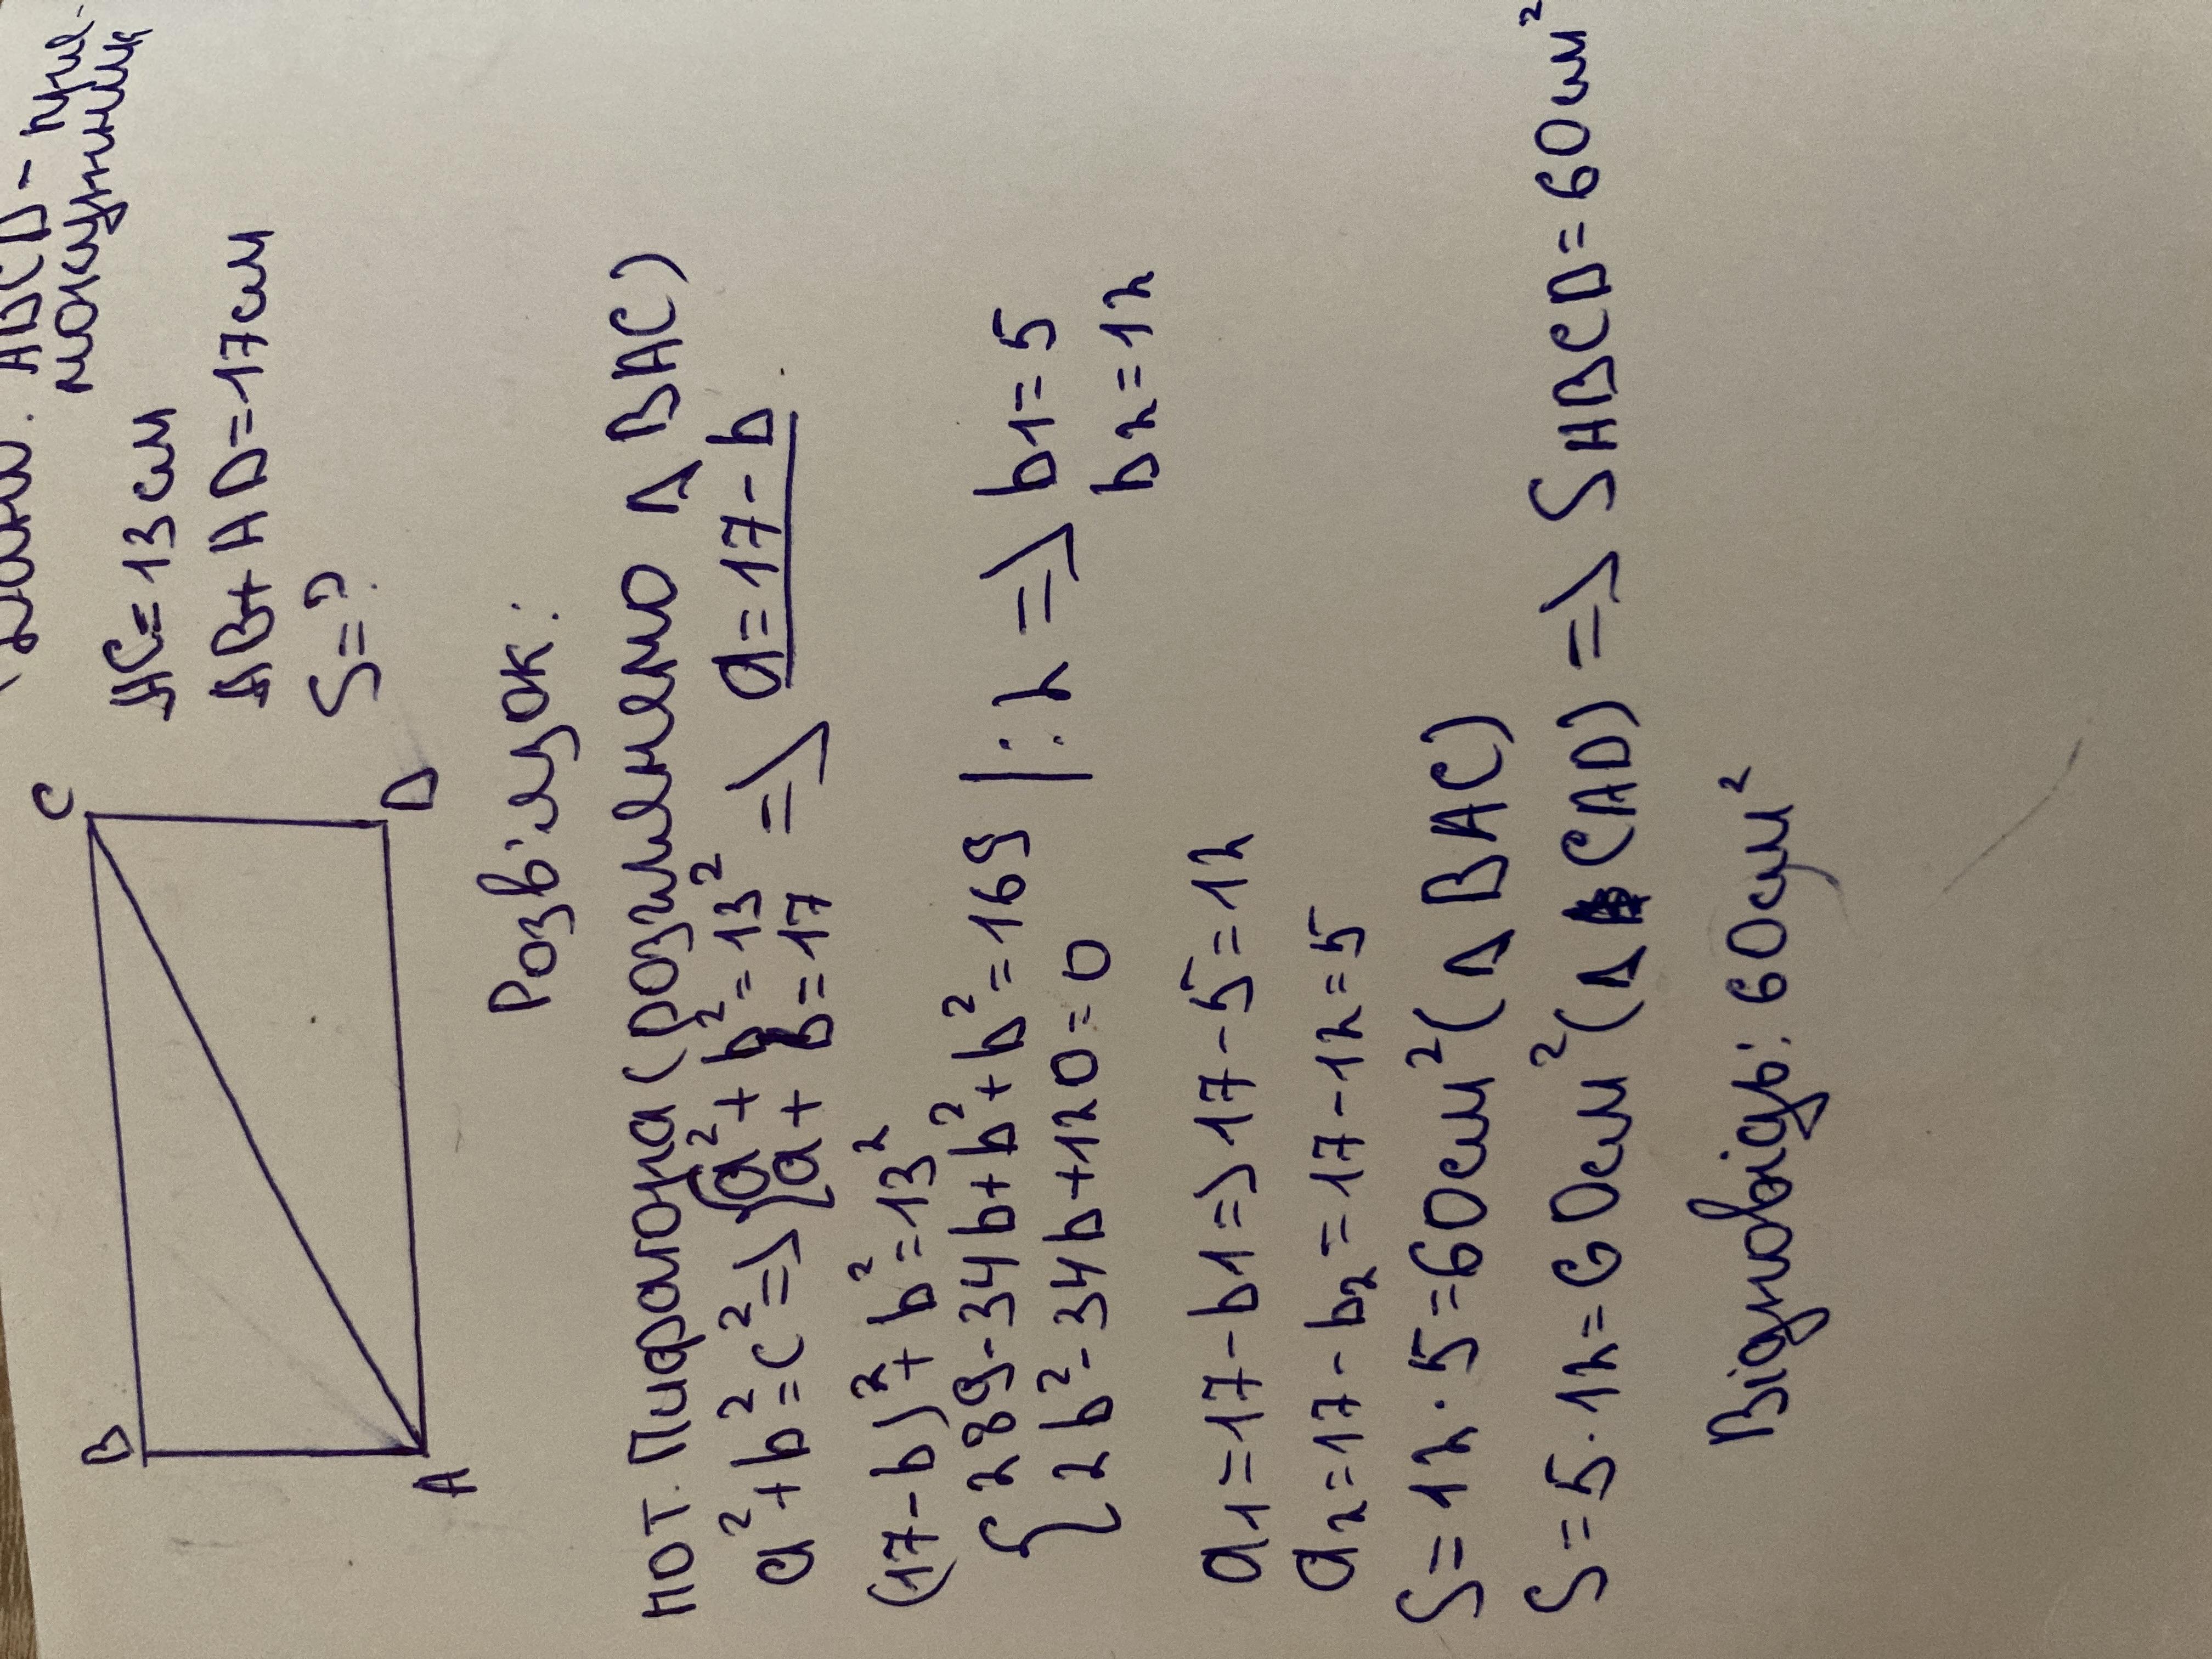 ABCD - пря-
мокутник
AC=13 см
AB+AD=17см
S=?
B
C
A
D
Розв'язок:
По т. Піфагора (розглянемо Δ BAC)
a²+b²=c² => { a²+b²=13²
a+b=17 => a=17-b
(17-b)²+b²=13²
{ 289-34b+b²+b²=169 |:2 => b1=5
2b²-34b+120=0
b2=12
a1=17-b1=>17-5=12
a2=17-b2=17-12=5
S=12·5=60см²(Δ BAC)
S=5·12=60см²(Δ CAD) => SABCD=60см²
Відповідь: 60см²